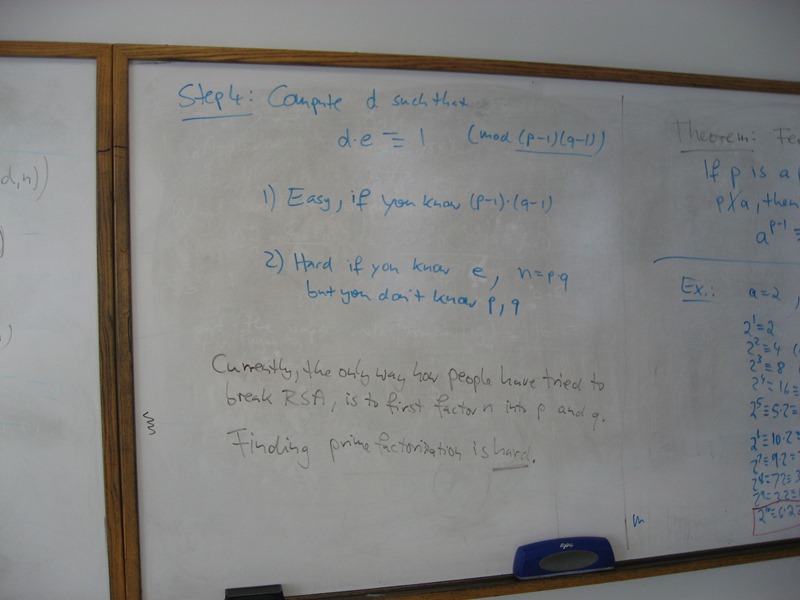 d,n))
)
)
Step 4: Compute d such that
d·e ≡ 1 (mod (p-1)(q-1))
1) Easy, if you know (p-1)·(q-1)
2) Hard if you know e, n=p·q
but you don't know p, q
Currently, the only way how people have tried to
break RSA, is to first factor n into p and q.
Finding prime factorization is hard.
Theorem: Fe
If p is a
p∤a, then
a^{p-1} ≡
Ex.: a=2,
2^1≡2
2^2≡4
2^3≡8
2^4≡16≡
2^5≡5·2=
2^6≡10·2
2^7≡9·2=
2^8≡7·2≡3
2^9≡3·2=
2^10≡6·2
expo